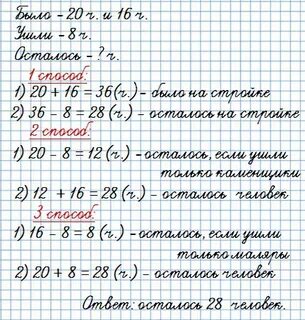 Было - 20 ч. и 16 ч.
Ушли - 8 ч.
Осталось - ? ч.
1 способ:
1) 20 + 16 = 36 (ч.) - было на стройке
2) 36 - 8 = 28 (ч.) - осталось на стройке
2 способ:
1) 20 - 8 = 12 (ч.) - осталось, если ушли
только каменщики
2) 12 + 16 = 28 (ч.) - осталось человек
3 способ:
1) 16 - 8 = 8 (ч.) - осталось, если ушли
только маляры
2) 20 + 8 = 28 (ч.) - осталось человек
Ответ: осталось 28 человек.